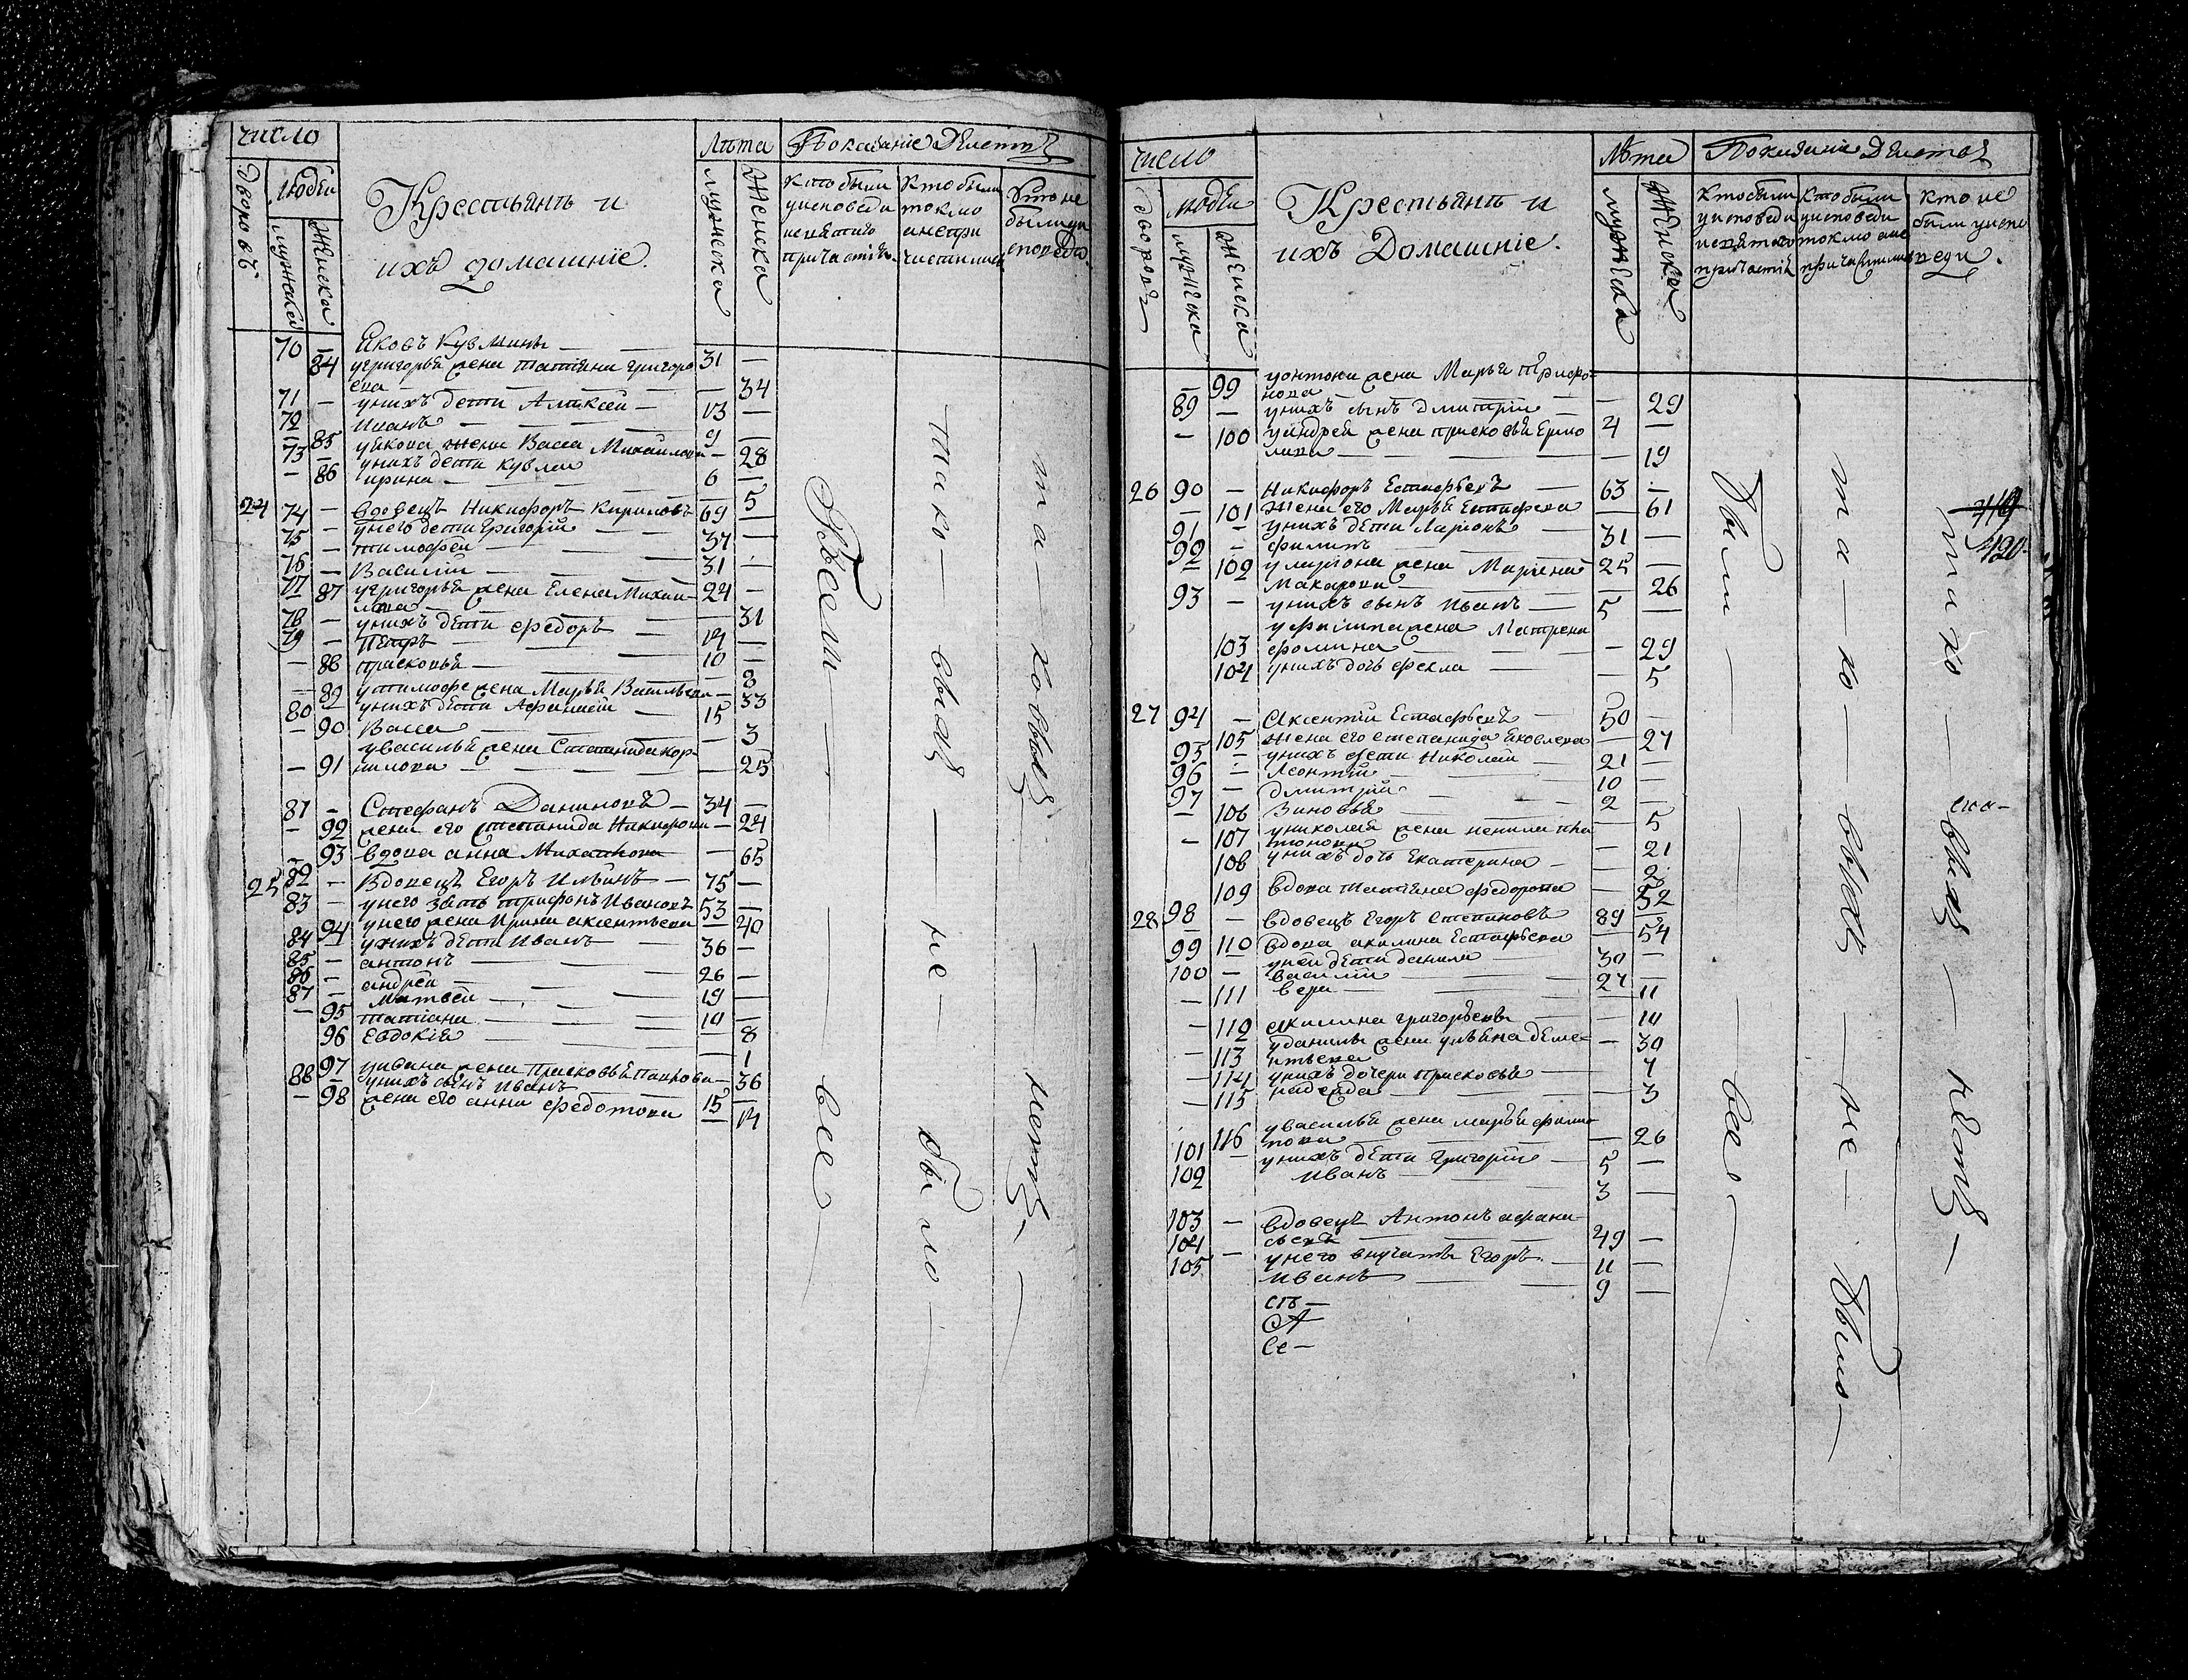 число
Лѣта Показаніе Действъ
дворовъ
людей
мужеска
женска
Крестьянъ и
ихъ домашніе.
мужеска
женска
кто были
у исповеди
и святаго
причастія.
кто были
токмо
а не при
чистились
кто не
были у и
споведи.
70 — Яковъ Кузминъ — 31 —
84 у григорья жена татіяна григорь
ева — — 34
71 — у нихъ дети Алѣксей — 13 —
72 — иванъ — 9 —
— 85 у якова жена Васса Михайлова — 28
73 — у нихъ дети кузма 6 —
— 86 ирина — — 5
24 74 — вдовецъ Никифоръ Кириловъ 69 —
75 — у него дети григорій — 37 —
76 — тимофей — 31 —
77 — Василій — 24 —
87 у григорья жена Елена Михай
лова — — 31
78 — у нихъ дети федоръ — 14 —
79 — Петръ — 10 —
— 88 прасковья — — 8
— 89 у тимофе жена Марья Васильева — 33
80 — у нихъ дети Афанасій — 15 —
— 90 Васса — — 3
у василья жена Степанида кор
— 91 нилова — — 25
81 — Стефанъ Даниловъ — 34 —
— 92 жена его степанида Никифорова — 24
— 93 вдова анна — 65
25 82 — Вдовецъ Егоръ Ильинъ — 75 —
83 — у него зять трифонъ Ивановъ 53 —
94 у него жена Ирина аксентьева — 40
84 — у нихъ дети Иванъ — 36 —
85 — антонъ — 26 —
86 — андрей — 19 —
87 — Матвей — 10 —
— 95 татіана — — 8
96 Евдокія — — 1
97 у ивана жена Прасковья Панкова — 36
88 — у нихъ сынъ Иванъ 15 —
— 98 жена его анна федотова — 14
все
тако — выхъ — не — бы ло —
та — ковыхъ — нетъ —
число
Лѣта Показаніе Действъ
дворовъ
людей
мужеска
женска
Крестьянъ и
ихъ Домашніе.
мужеска
женска
кто были
у исповеди
и святаго
причастія
кто были
у исповеди
токмо а не
причастились
кто не
были у испо
веди.
у онтона жена Марья трифо
— 99 нова — — 29
89 — у нихъ сынъ дмитріи — 4 —
— 100 у андрея жена прасковья Ермо
лина — — 19
26 90 — Никифоръ Естафьевъ — 63 —
— 101 жена его Марья Естафева — 61
91 — у нихъ дети Ларіонъ — 31 —
92 — филипъ 25 —
102 у ларіона жена
Макарова — — 26
93 — у нихъ сынъ иванъ — 5 —
у филипа жена Матрена
103 фомина — — 29
104 у нихъ дочь фекла — — 5
27 94 — Аксентій Естафьевъ — 50 —
105 жена его степанида Яковлева — 27
95 — у нихъ дети Николай — 21 —
96 — Леонтій — 10 —
97 — Дмитрій — 2 —
— 106 Зиновья — — 5
— 107 у николая жена
— 21
108 у нихъ дочь Екатерина — — 2
109 вдова татіяна федорова — 52
28 98 — вдовецъ Егоръ Степановъ 89 —
110 вдова акилина Естафьева — 54
99 — у ней дети данила 30 —
100 — василій — 27 —
— 111 вера — — 11
— 112 акилина григорьева — 10
— 113 у данилы жена ульяна деме
нтьева — 30
— 114 у нихъ дочери прасковья — 7
— 115 надежда — — 3
116 у василья жена марья фили
пова — — 26
101 — у нихъ дети Григоріи — 5 —
102 иванъ — 3 —
103 — вдовецъ Антонъ афана
сьевъ — 49 —
104 — у него внучаты Егоръ — 11 —
105 иванъ — 9 —
св —
А
се —
были — все
та — ко — выхъ — не — было —
тако — выхъ — нетъ —
119
120